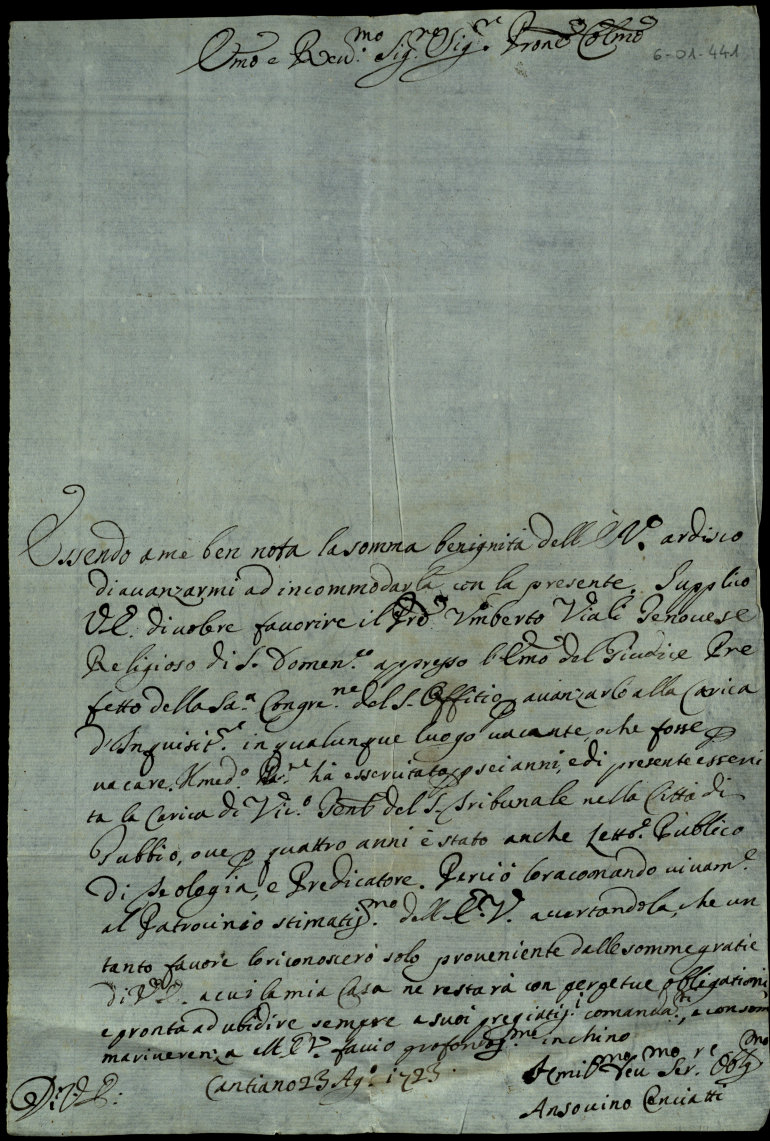 Emo e Reu.mo Sig.re Sig.re Pron Colmo
6-01-441
Essendo a me ben nota la somma benignità dell' E V.a ardisco
di auanzarmi ad incommodarla con la presente. Supplico
V.E. di uolere fauorire il Prd Vmberto Viali Genouese
Religioso di S. Domen.co appresso l'Emo del Giudice Pre
fetto della Sa.a Congre.ne del S. Offitio p auanzarlo alla Carica
d'Inquisit.re in qualunque luogo uacante, o che fosse p
uacare. Il med.o ha esercitata p sei anni, e di presente eserci
ta la Carica di Vic.o Genle del S. Tribunale nella Città di
Gubbio, oue p quattro anni è stato anche Lett.e Publico
di Teologia, e Predicatore. Perciò lo racomando viuam.e
al Patrocinio stimatiss.mo dell' E. V. acertandola, che un
tanto fauore lo riconoscerò solo proueniente dalle somme gratie
di V.E. a cui la mia Casa ne restarà con perpetue obligationi
e pronta ad ubidire sempre a suoi pregiatiss.i comanda.ti, e con som
ma riuerenza all' E.V. faccio profondiss.mo inchino
Di V. E.
Cantiano 23 Ag.o 1723
Humil.mo Deu.mo Ser.re Obg.mo
Ansouino